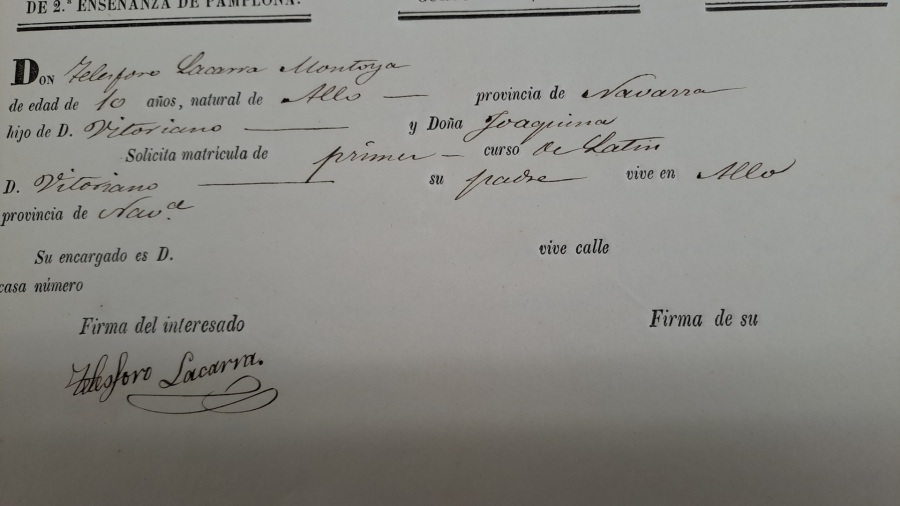 DE 2.ª ENSEÑANZA DE PAMPLONA.
DON Telesforo Lacarra Montoya
de edad de 10 años, natural de Allo — provincia de Navarra
hijo de D. Vitoriano — y Doña Joaquina
Solicita matricula de primer — curso de Latin
D. Vitoriano — su padre vive en Allo
provincia de Nav.ª
Su encargado es D. vive calle
casa número
Firma del interesado Firma de su
Telesforo Lacarra.